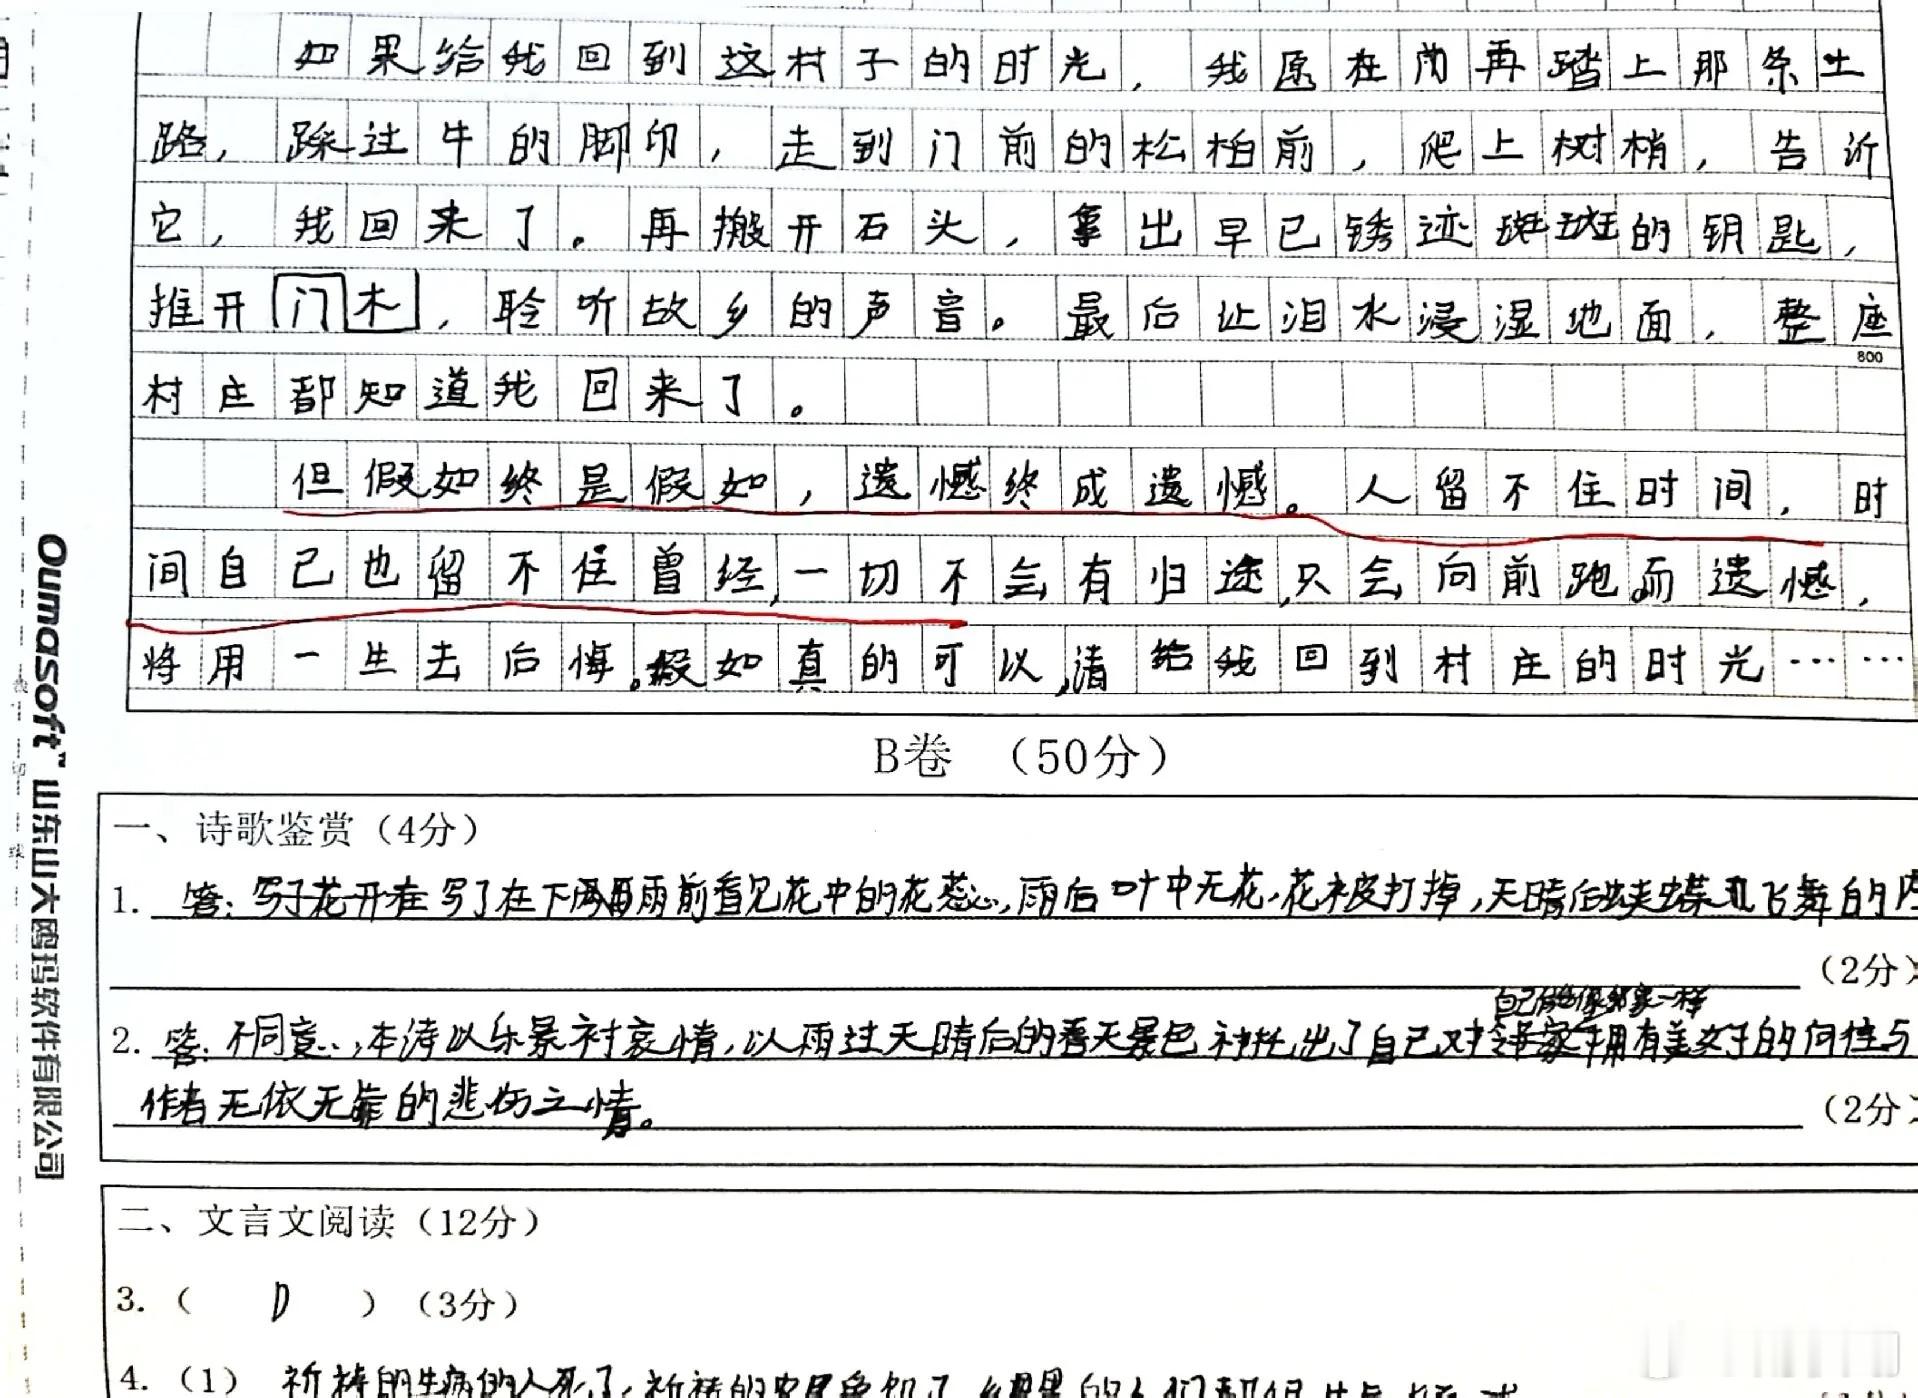 如果给我回到这村子的时光，我愿在雨再踏上那条土
路，踩过牛的脚印，走到门前的松柏前，爬上树梢，告诉
它，我回来了。再搬开石头，拿出早已锈迹斑斑的钥匙，
推开门木，聆听故乡的声音。最后让泪水浸湿地面，整座
800
村庄都知道我回来了。
但假如终是假如，遗憾终成遗憾。人留不住时间，时
间自己也留不住曾经，一切不会有归途，只会向前跑。而遗憾，
将用一生去后悔。假如真的可以，请给我回到村庄的时光……
B卷 （50分）
一、诗歌鉴赏（4分）
1. 答：写了花开在写了在下雨前看见花中的花蕊，雨后叶中无花，花被打掉，天晴后蛱蝶飞舞的内
（2分）
自己能像邻家一样
2. 答：不同意，本诗以乐景衬哀情，以雨过天晴后的春天景色衬托出了自己对邻家拥有美好的向往与
作者无依无靠的悲伤之情。
（2分）
二、文言文阅读（12分）
3.（ D ）（3分）
4.（1）祈祷的生病的人死了，祈祷的
Oumasoft™ 山东山大鸥玛软件有限公司